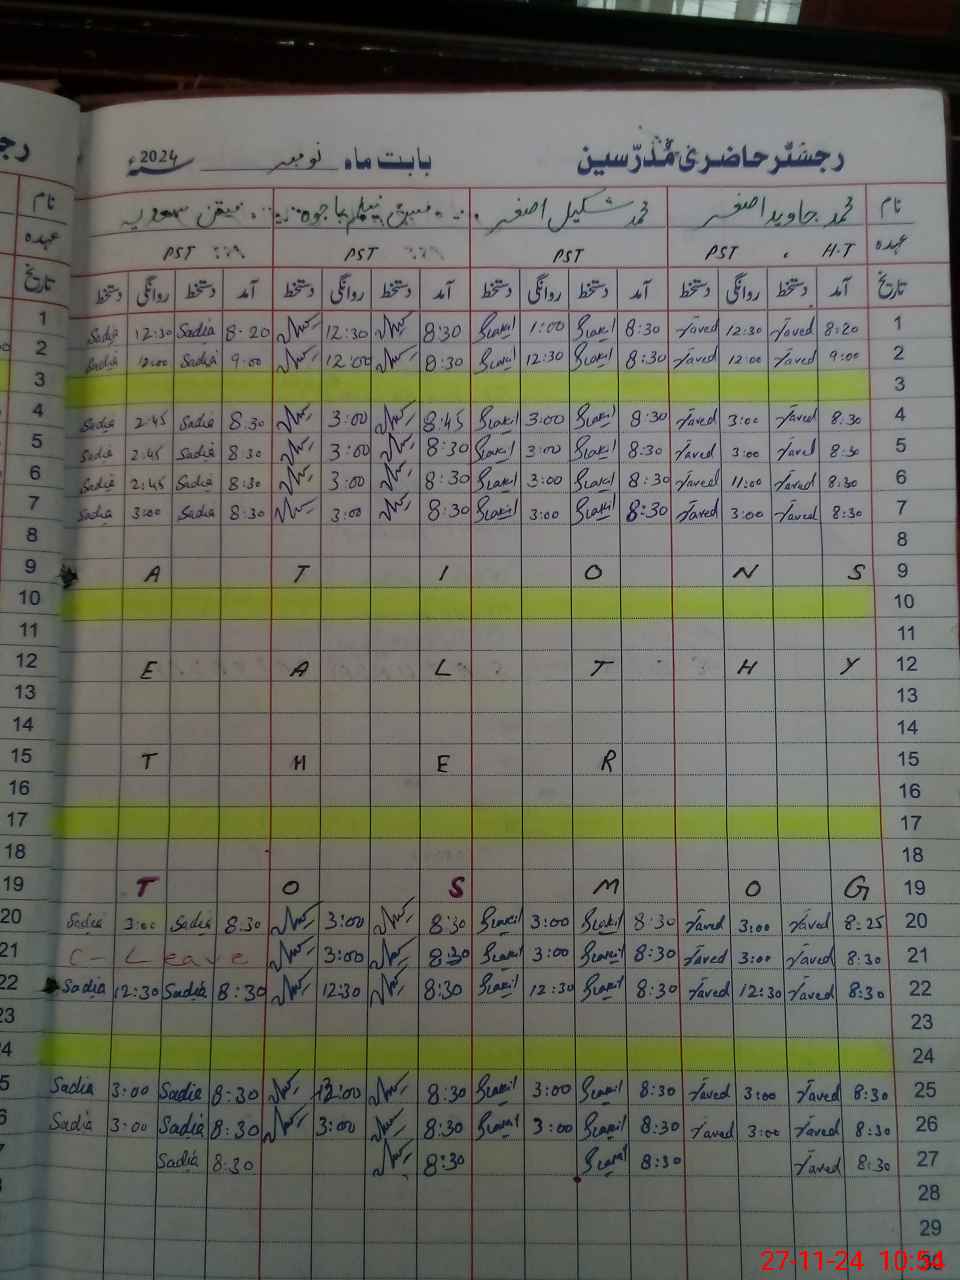 رجسٹر حاضری مُدرّسین بابت ماہ نومبر سنہ 2024ء
نام محمد جاوید اصغر محمد شکیل اصغر
عہدہ H.T PST PST PST PST
تاریخ آمد دستخط روانگی دستخط آمد دستخط روانگی دستخط آمد دستخط روانگی دستخط آمد دستخط روانگی دستخط
1 8:20 Javed 12:30 Javed 8:30 Shakil 1:00 Shakil 8:30 12:30 8-20 Sadia 12:30 Sadia 1
2 9:00 Javed 12:00 Javed 8:30 Shakil 12:30 Shakil 8:30 12:00 9:00 Sadia 12:00 Sadia 2
3 3
4 8:30 Javed 3:00 Javed 8:30 Shakil 3:00 Shakil 8:45 3:00 8:30 Sadia 2:45 Sadia 4
5 8:30 Javed 3:00 Javed 8:30 Shakil 3:00 Shakil 8:30 3:00 8:30 Sadia 2:45 Sadia 5
6 8:30 Javed 11:00 Javed 8:30 Shakil 3:00 Shakil 8:30 3:00 8:30 Sadia 2:45 Sadia 6
7 8:30 Javed 3:00 Javed 8:30 Shakil 3:00 Shakil 8:30 3:00 8:30 Sadia 3:00 Sadia 7
8 8
9 A T I O N S 9
10 10
11 11
12 E A L T H Y 12
13 13
14 14
15 T H E R 15
16 16
17 17
18 18
19 T O S M O G 19
20 8:25 Javed 3:00 Javed 8:30 Shakil 3:00 Shakil 8:30 3:00 8:30 Sadia 3:00 Sadia 20
21 8:30 Javed 3:00 Javed 8:30 Shakil 3:00 Shakil 8:30 3:00 C-Leave 21
22 8:30 Javed 12:30 Javed 8:30 Shakil 12:30 Shakil 8:30 12:30 8:30 Sadia 12:30 Sadia 22
23 23
24 4
25 8:30 Javed 3:00 Javed 8:30 Shakil 3:00 Shakil 8:30 8:30 Sadia 3:00 Sadia 5
26 8:30 Javed 3:00 Javed 8:30 Shakil 3:00 Shakil 8:30 3:00 8:30 Sadia 3:00 Sadia
27 8:30 Javed 8:30 Shakil 8:30 8:30 Sadia
28
29
27-11-24 10:54